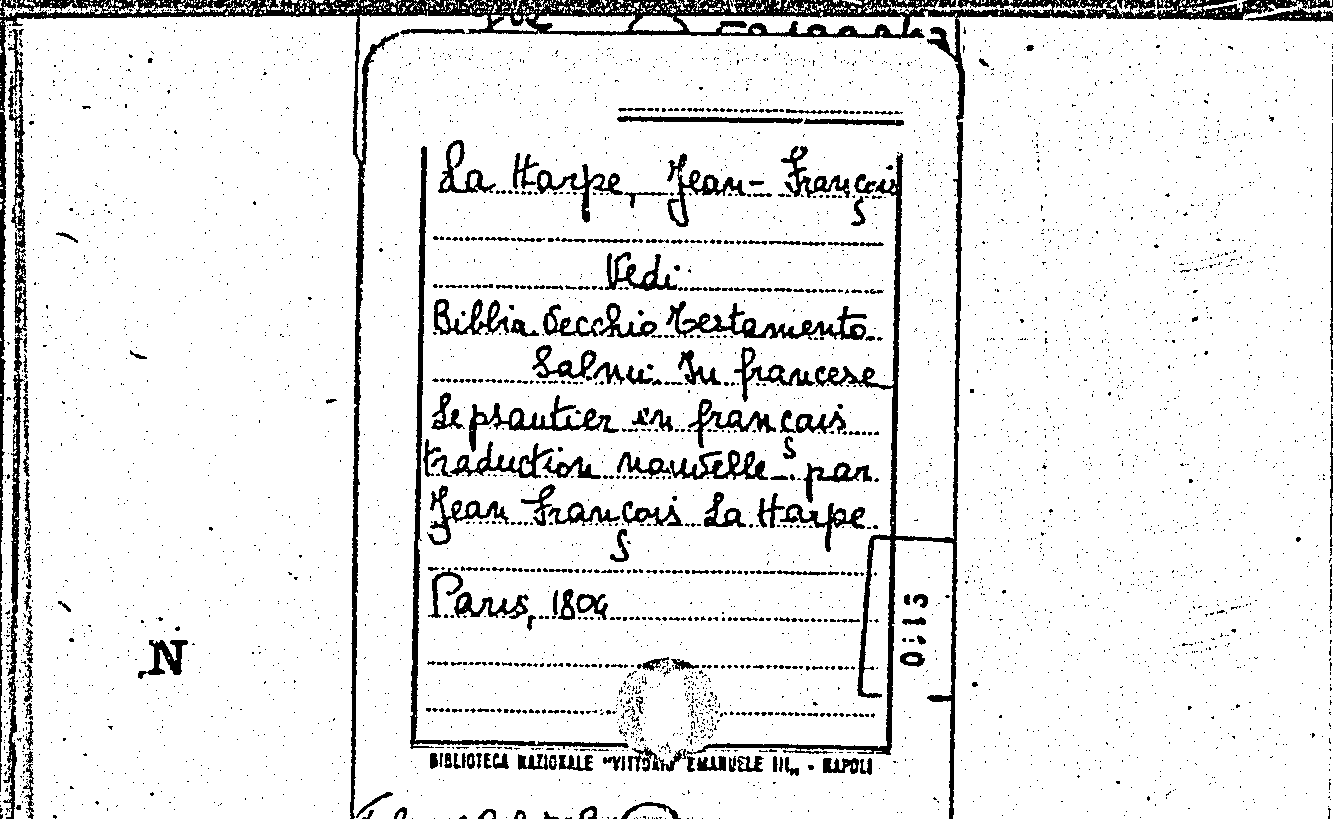 La Harpe, Jean-François
Vedi
Bibbia. Vecchio Testamento.
Salmi. In francese
Le psautier en français
traduction nouvelle par
Jean François La Harpe.
Paris, 1804
0:15
N
BIBLIOTECA NAZIONALE "VITTORIO EMANUELE III„ - NAPOLI